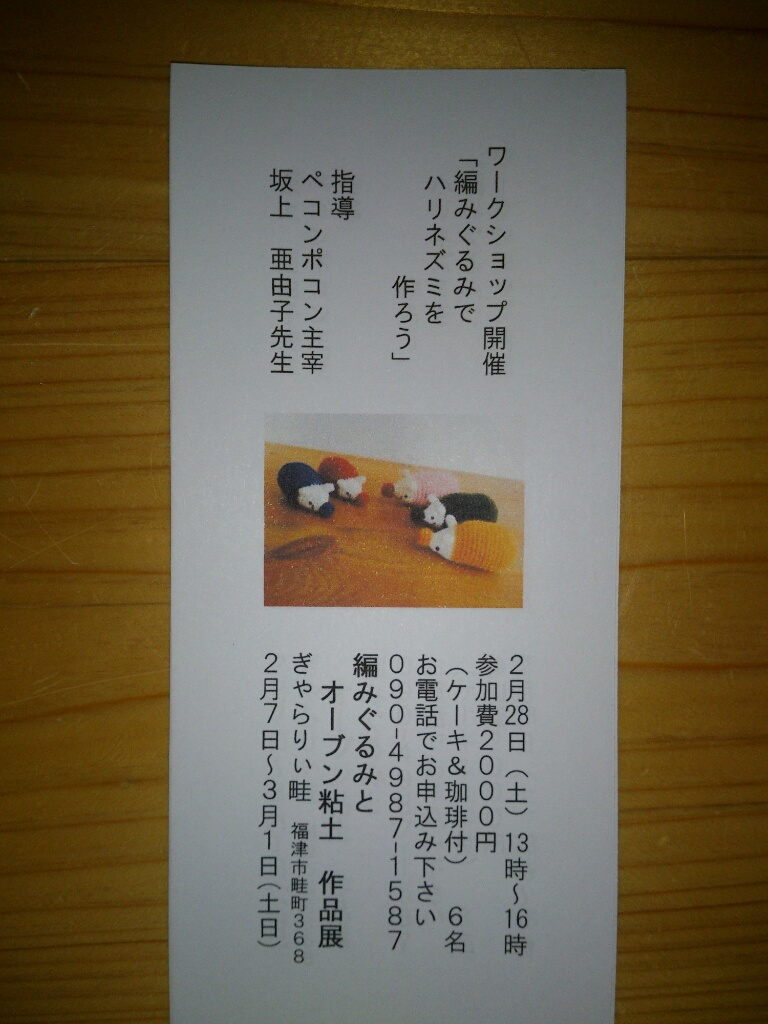 ワークショップ開催
「編みぐるみで
ハリネズミを
作ろう」
指導
ペコンポコン主宰
坂上　亜由子先生
2月28日（土）13時～16時
参加費2000円
（ケーキ＆珈琲付）　6名
お電話でお申込み下さい
090-4987-1587
編みぐるみと
オーブン粘土　作品展
ぎゃらりい畦　福津市畦町368
2月7日～3月1日（土日）